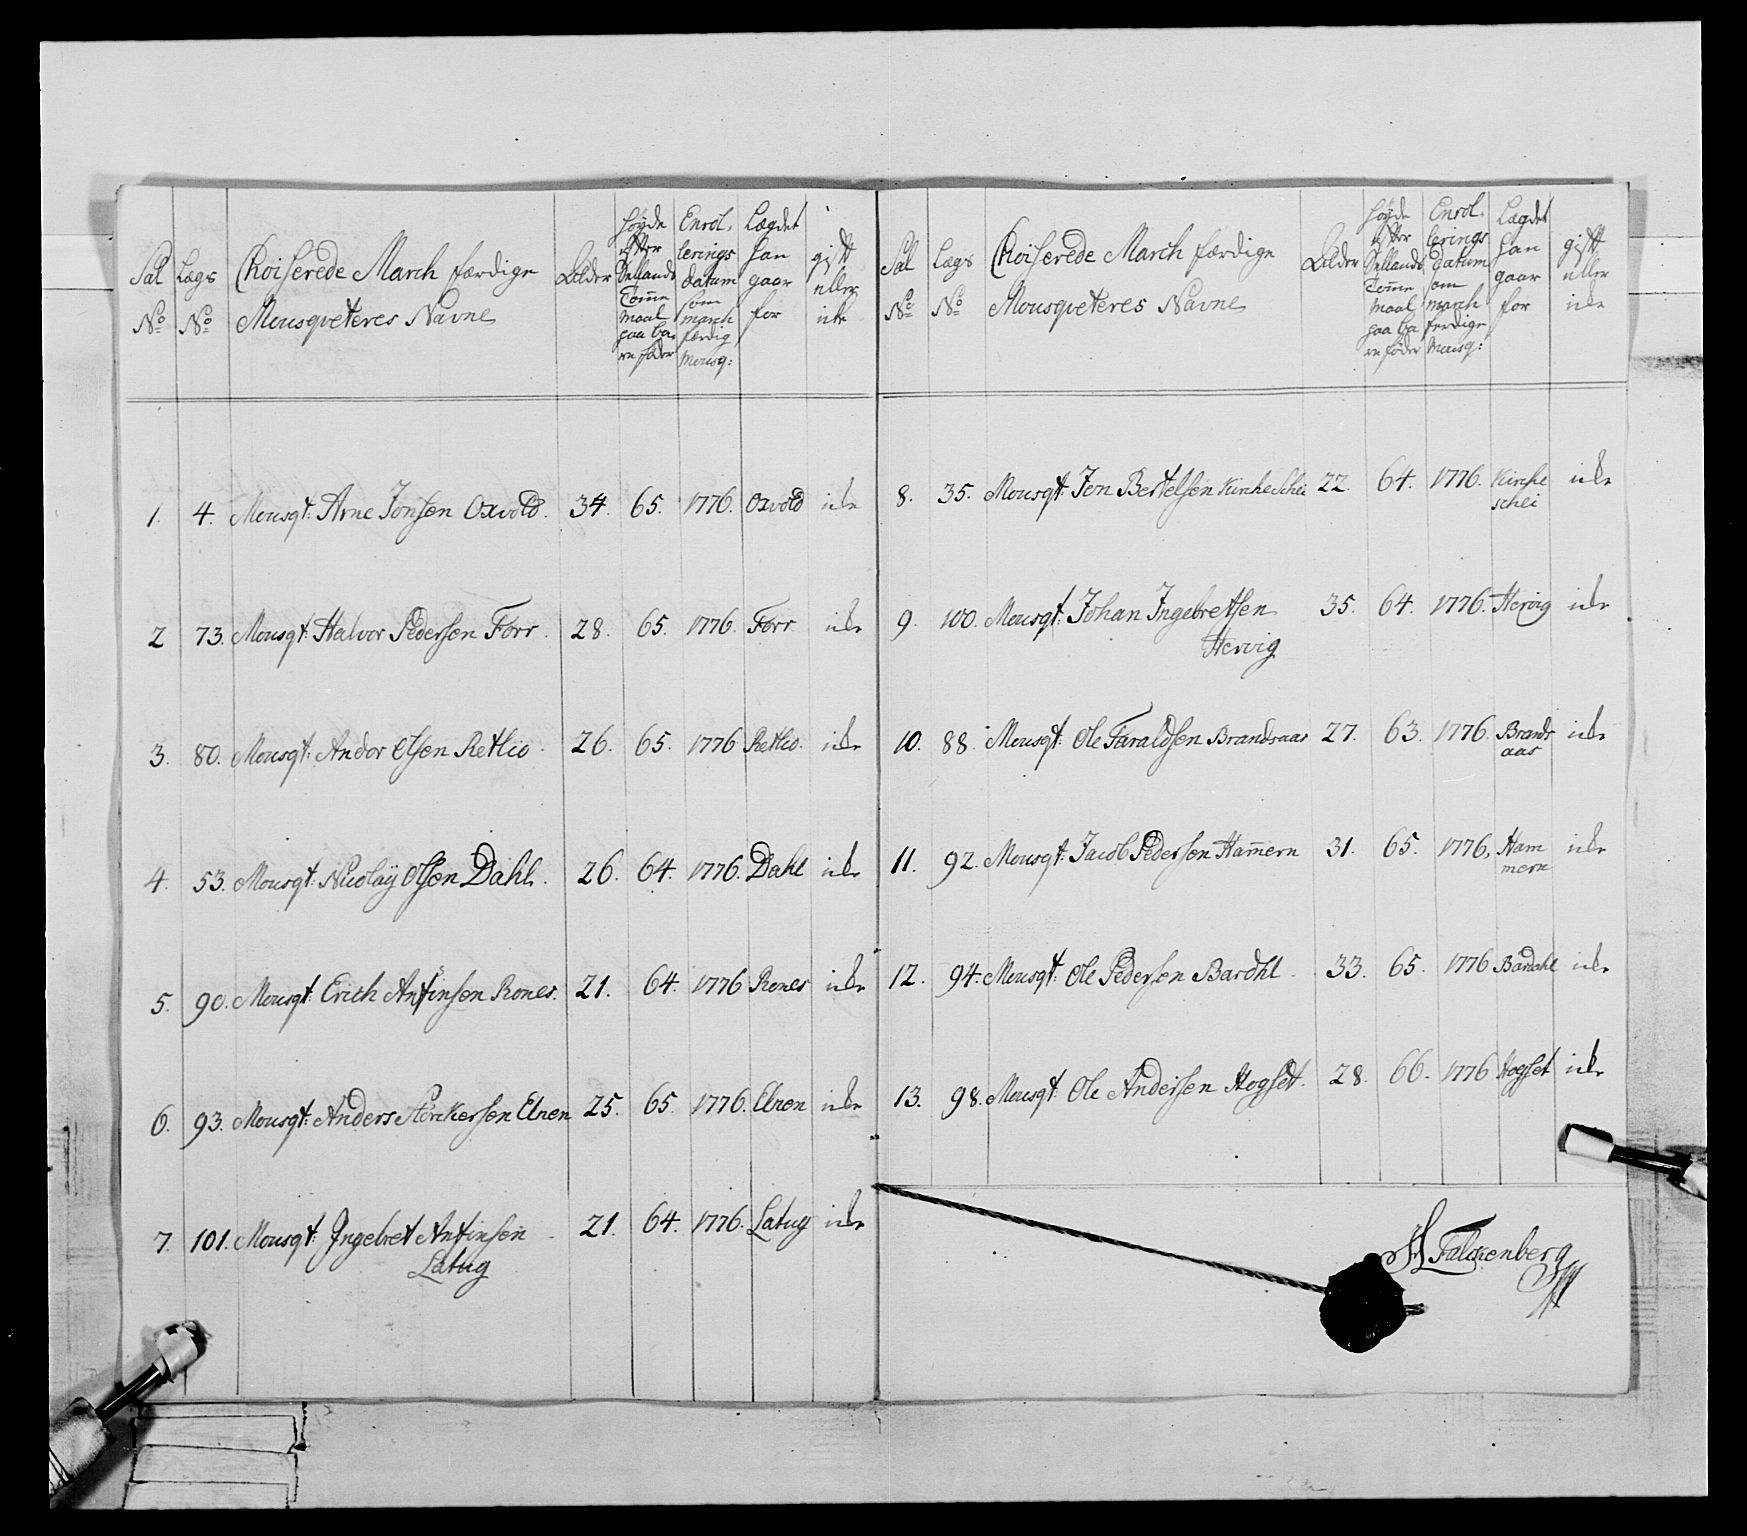 Sal No Lægs No Choiserede March færdige Mousqveteres Navne Alder Høyde efter Sællands Tom̄e Maal paa bare føder Enrollerings datum som march færdig Mousq: Lægdet han gaar for gift eller icke
1. 4. Mousqt: Arne Jonsen Oxvold. 34. 65. 1776. Oxvold icke
2 73. Mousqt: Halvor Pedersen Forr. 28. 65. 1776. Forr icke
3. 80. Mousqt: Andor Olsen Retlio. 26. 65. 1776 Retlio. icke
4. 53. Mousqt: Nicolaÿ Olsen Dahl. 26. 64. 1776. Dahl icke
5. 90. Mousqt: Erich Antinsen Rones. 21. 64. 1776 Rones icke
6. 93. Mousqt: Anders Størckersen Elnen 25. 65. 1776. Elnen icke
7. 101. Mousqt: Ingebret Antinsen 21. 64. 1776. Latug icke
Latug
Sal No Lægs No Choiserede March færdige Mousqveteres Navne Alder Høyde efter Sællands Tom̄e Maal paa bare føder Enrollerings datum som march ferdige Mousq: Lægdet han gaar for gift eller icke
8. 35. Mousqt: Jon Bertelsen Kircheschei 22. 64. 1776. Kirche icke
schei
9. 100. Mousqt: Johan Ingebretsen 35. 64. 1776. Hervig icke
Hervig
10. 88. Mousqt: Ole Taraldsen Brandsaas 27. 63. 1776. Brands icke
aas
11. 92. Mousqt: Jacob Pedersen Ham̄ern 31. 65. 1776. Ham icke
mern
12. 94. Mousqt: Ole Pedersen Bardhl 33. 65. 1776 Bardahl icke
13. 98. Mousqt: Ole Andersen Hogsett. 28. 66. 1776 Hogset icke
Falckenberg